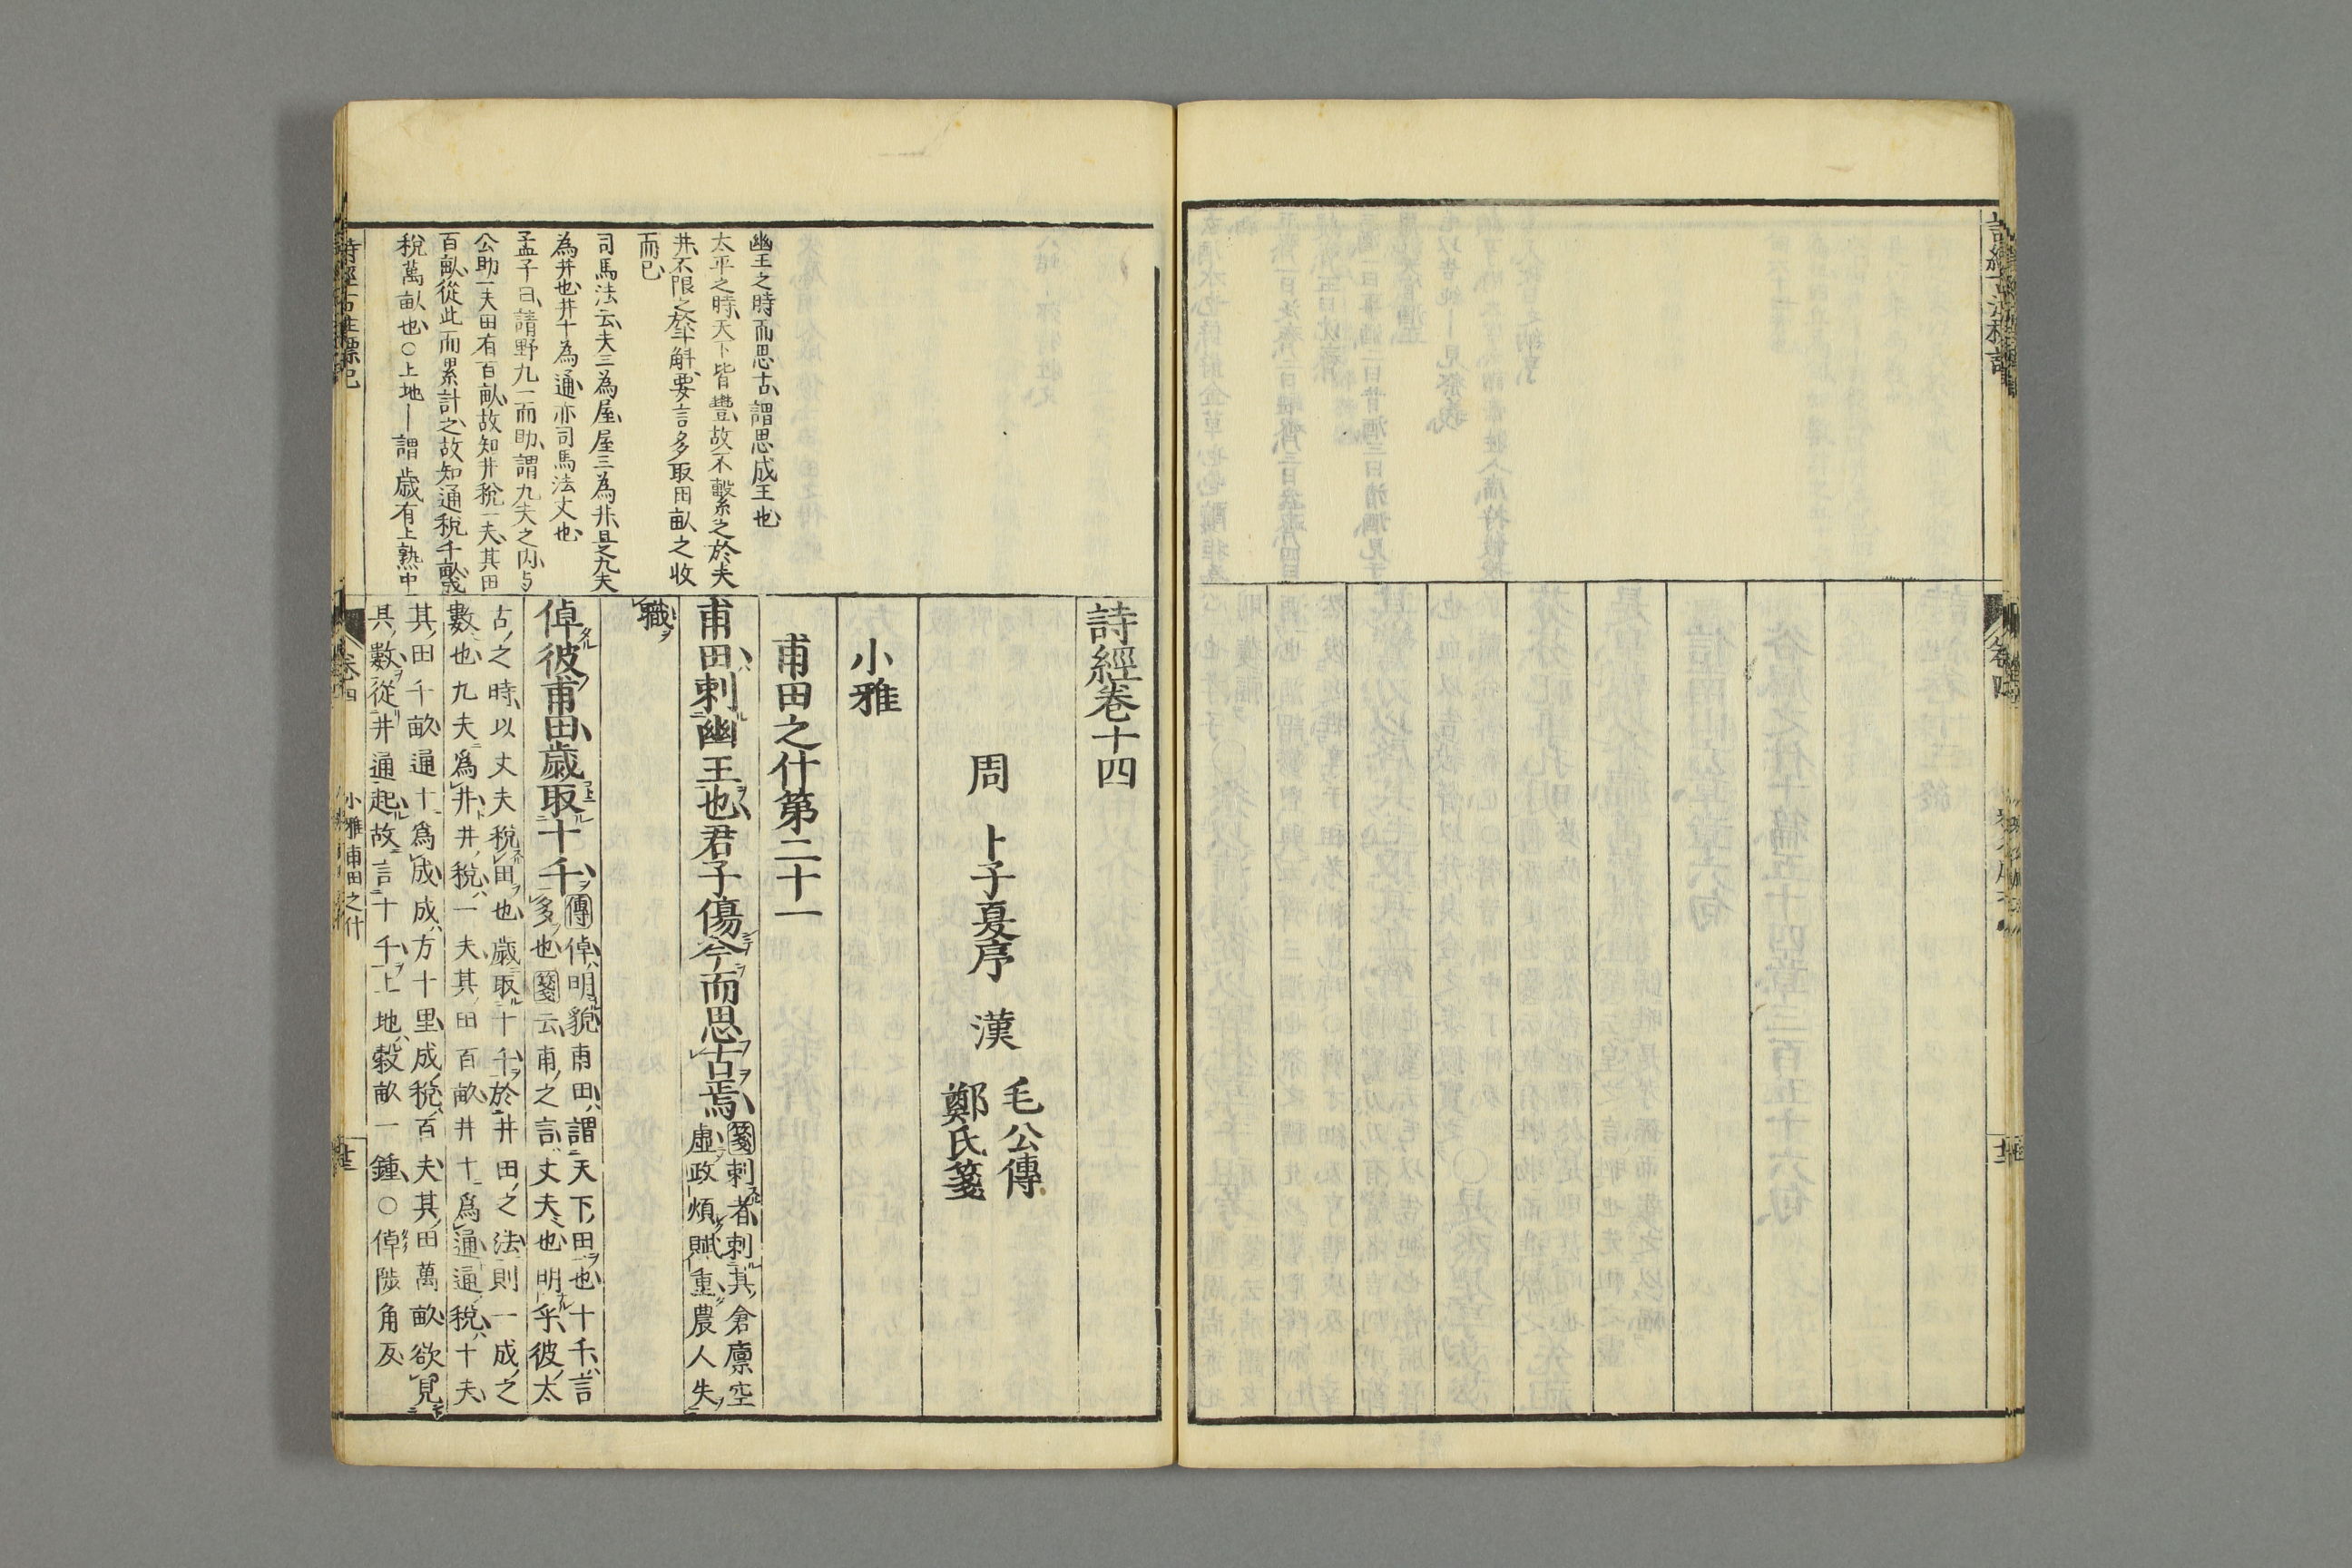 詩經卷十四
周 卜子夏序 漢 毛公傳
鄭氏箋
小雅
甫田之什第二十一
甫田刺幽王也君子傷今而思古焉 箋 刺者刺其倉廩空
虛政煩賦重農人失
職
倬彼甫田歲取十千 傳 倬明貌甫田謂天下田也十千言
多也 箋 云甫之言丈夫也明乎彼太
古之時以丈夫稅田也歲取十千於井田之法則一成之
數也九夫爲井井稅一夫其田百畝井十爲通通稅十夫
其田千畝通十爲成成方十里成稅百夫其田萬畝欲見
其數從井通起故言十千上地穀畝一鍾○倬陟角反
幽王之時而思古謂思成王也
太平之時天下皆豊故不繫之於夫
井不限之於斗斛要言多取田畝之收
而已
司馬法云夫三為屋屋三為井是九夫
為井也井十為通亦司馬法文也
孟子曰請野九一而助謂九夫之內与
公助一夫田有百畝故知井稅一夫其田
百畝從此而累計之故知通稅千畝成
稅萬畝也○上地—謂歲有上熟中
詩經古注標記
卷十四
小雅甫田之什